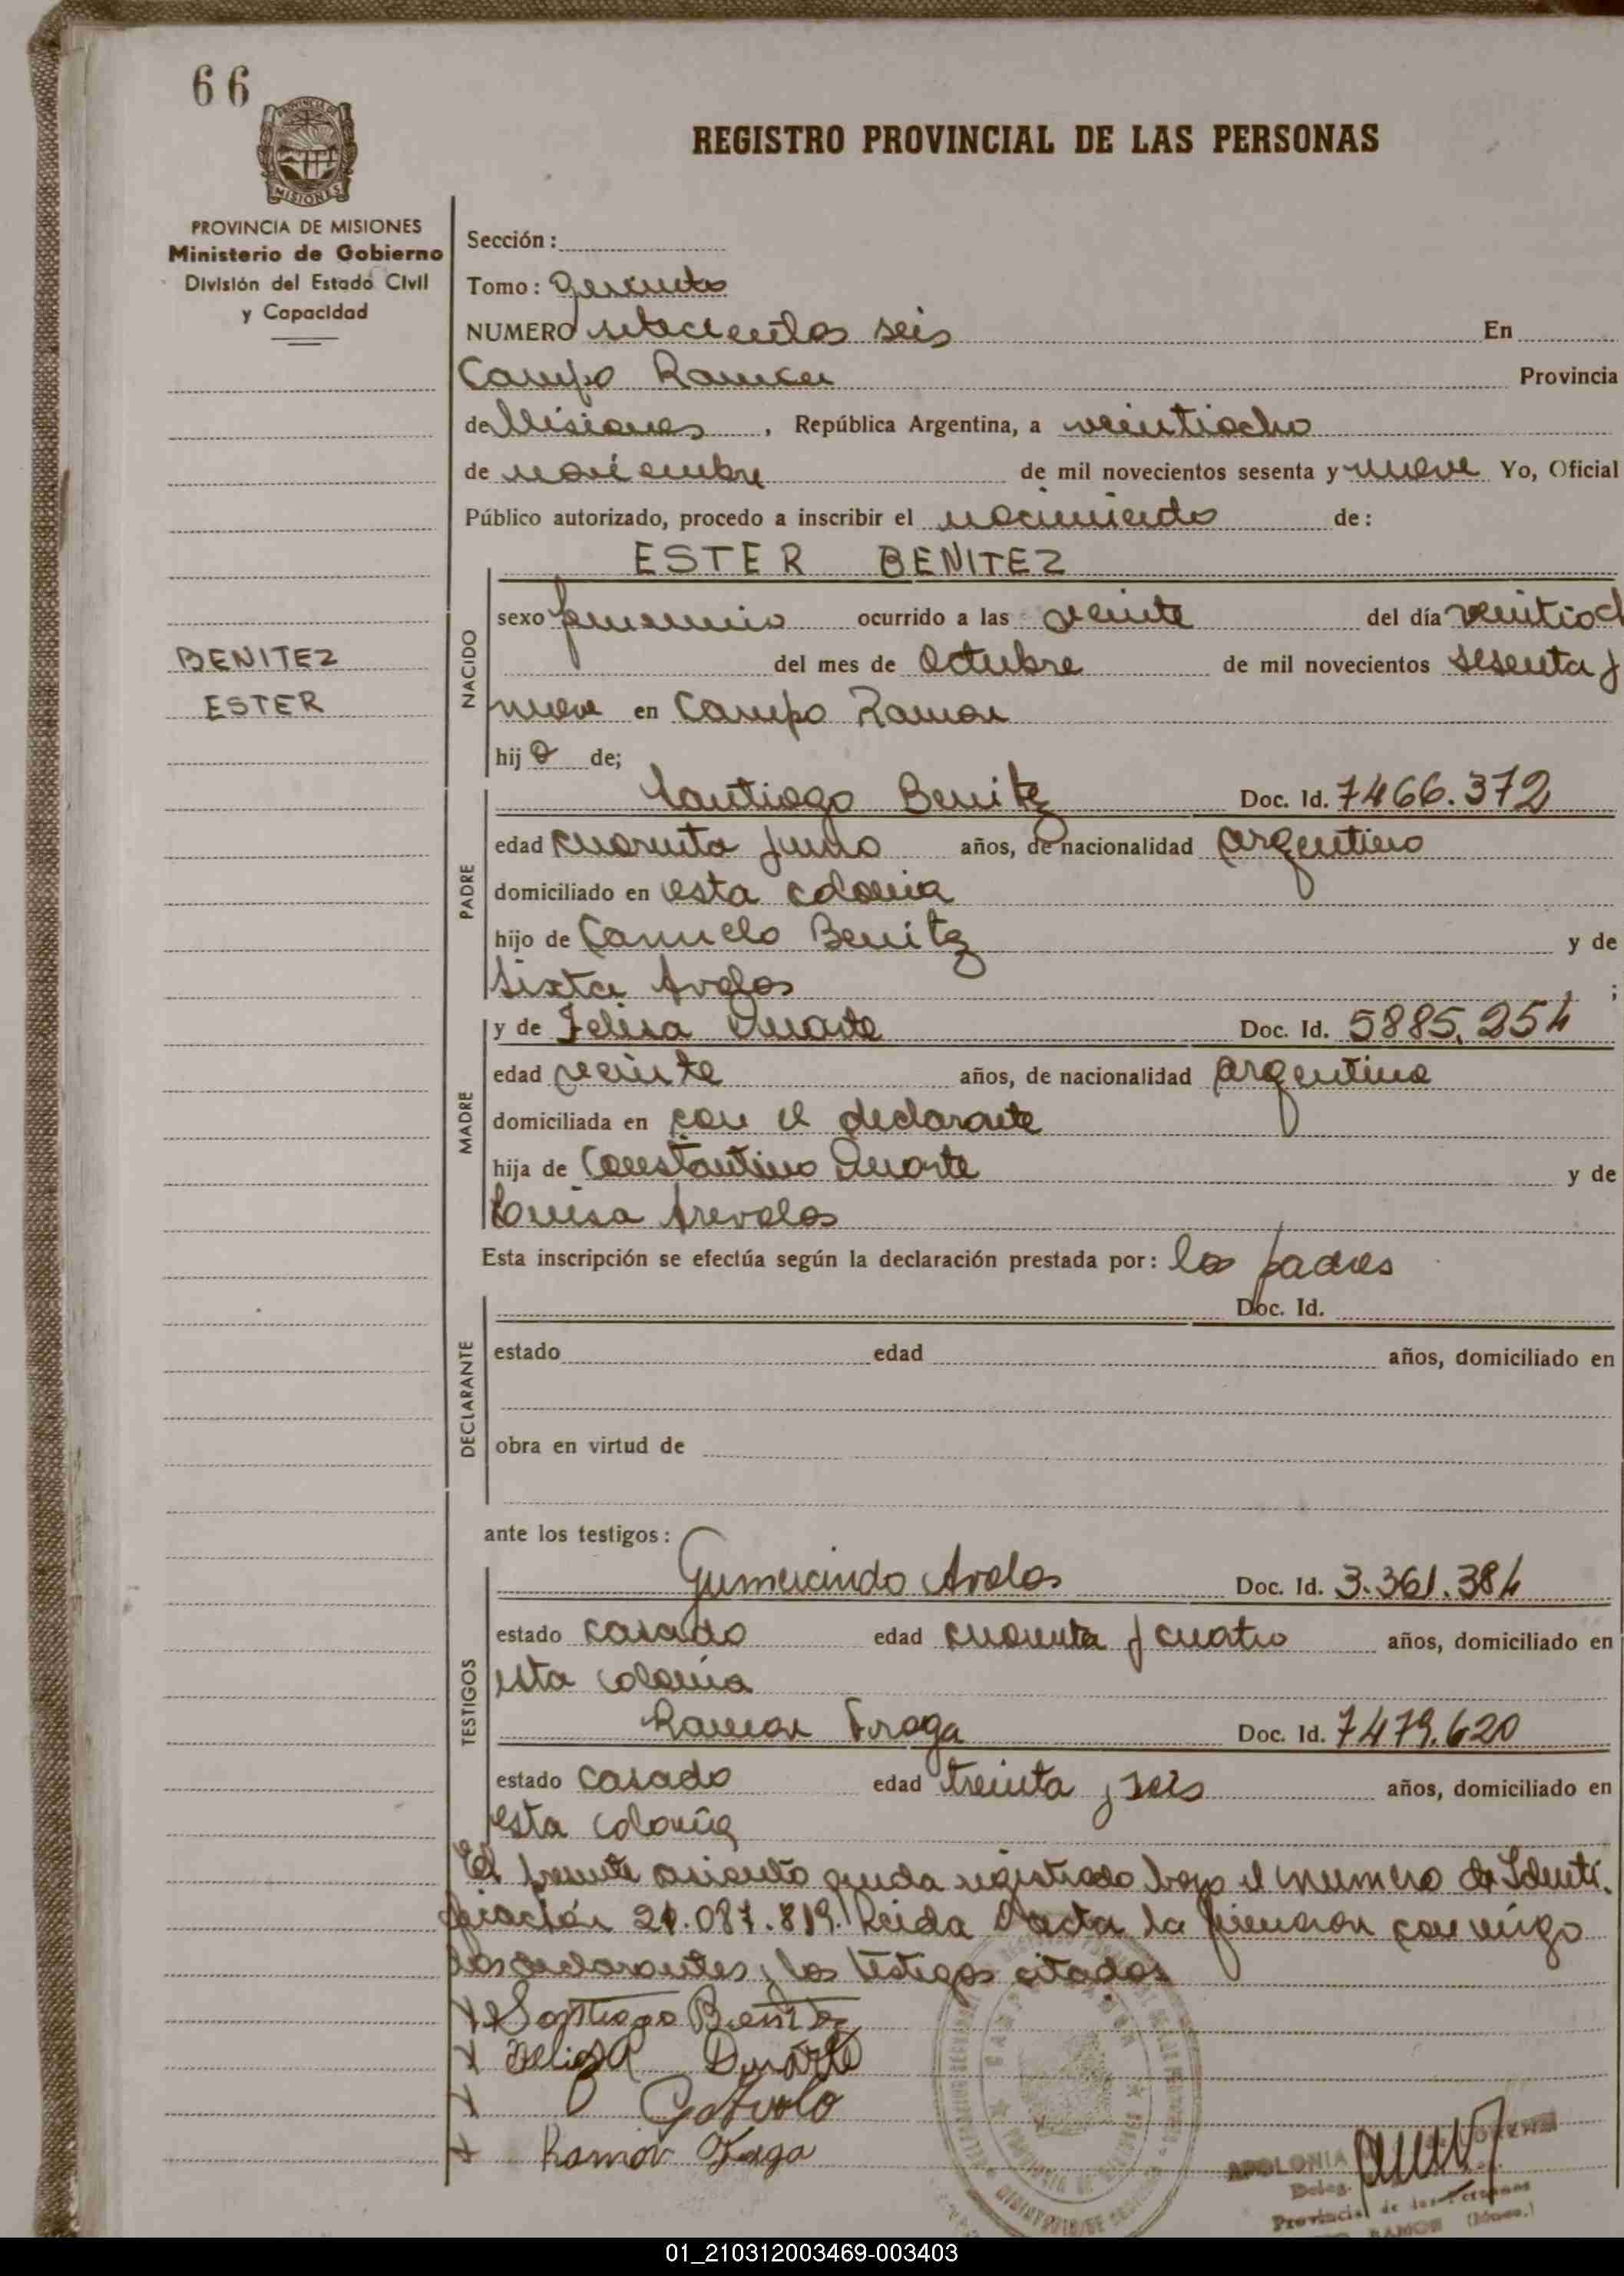 66
PROVINCIA DE MISIONES
REGISTRO PROVINCIAL DE LAS PERSONAS
PROVINCIA DE MISIONES
Ministerio de Gobierno
División del Estado Civil
y Capacidad
Sección:
Tomo:
NUMERO setecientos seis En
Campo Ramon Provincia
de Misiones, República Argentina, a veintiocho
de noviembre de mil novecientos sesenta y nueve Yo, Oficial
Público autorizado, procedo a inscribir el nacimiento de:
ESTER BENITEZ
BENITEZ
ESTER
NACIDO
sexo femenino ocurrido a las veinte del día veintioch
del mes de Octubre de mil novecientos sesenta y
nueve en Campo Ramon
hij a de;
PADRE
Santiago Benitez Doc. Id. 7466.372
edad cuarenta y uno años, de nacionalidad argentino
domiciliado en esta colonia
hijo de Benitez y de
Sixta Avalos ;
MADRE
y de Felisa Duarte Doc. Id. 5885.254
edad veinte años, de nacionalidad argentina
domiciliada en con el declarante
hija de Constantino Duarte y de
Luisa Arevalos
Esta inscripción se efectúa según la declaración prestada por: los padres
DECLARANTE
Doc. Id.
estado edad años, domiciliado en
obra en virtud de
ante los testigos:
TESTIGOS
Gumercindo Avalos Doc. Id. 3.361.384
estado casado edad cuarenta y cuatro años, domiciliado en
esta colonia
Ramon Fraga Doc. Id. 7479.620
estado casado edad treinta y seis años, domiciliado en
esta colonia
El presente asiento queda registrado bajo el numero de Identi.
ficación 21.087.819. Leida el acta la firmaron conmigo
los declarantes y los testigos citados
Santiago Benitez
Felisa Duarte
Ramon Fraga
APOLONIA
Deleg.
Provincial de las Personas
RAMON (Mnes.)
01_210312003469-003403